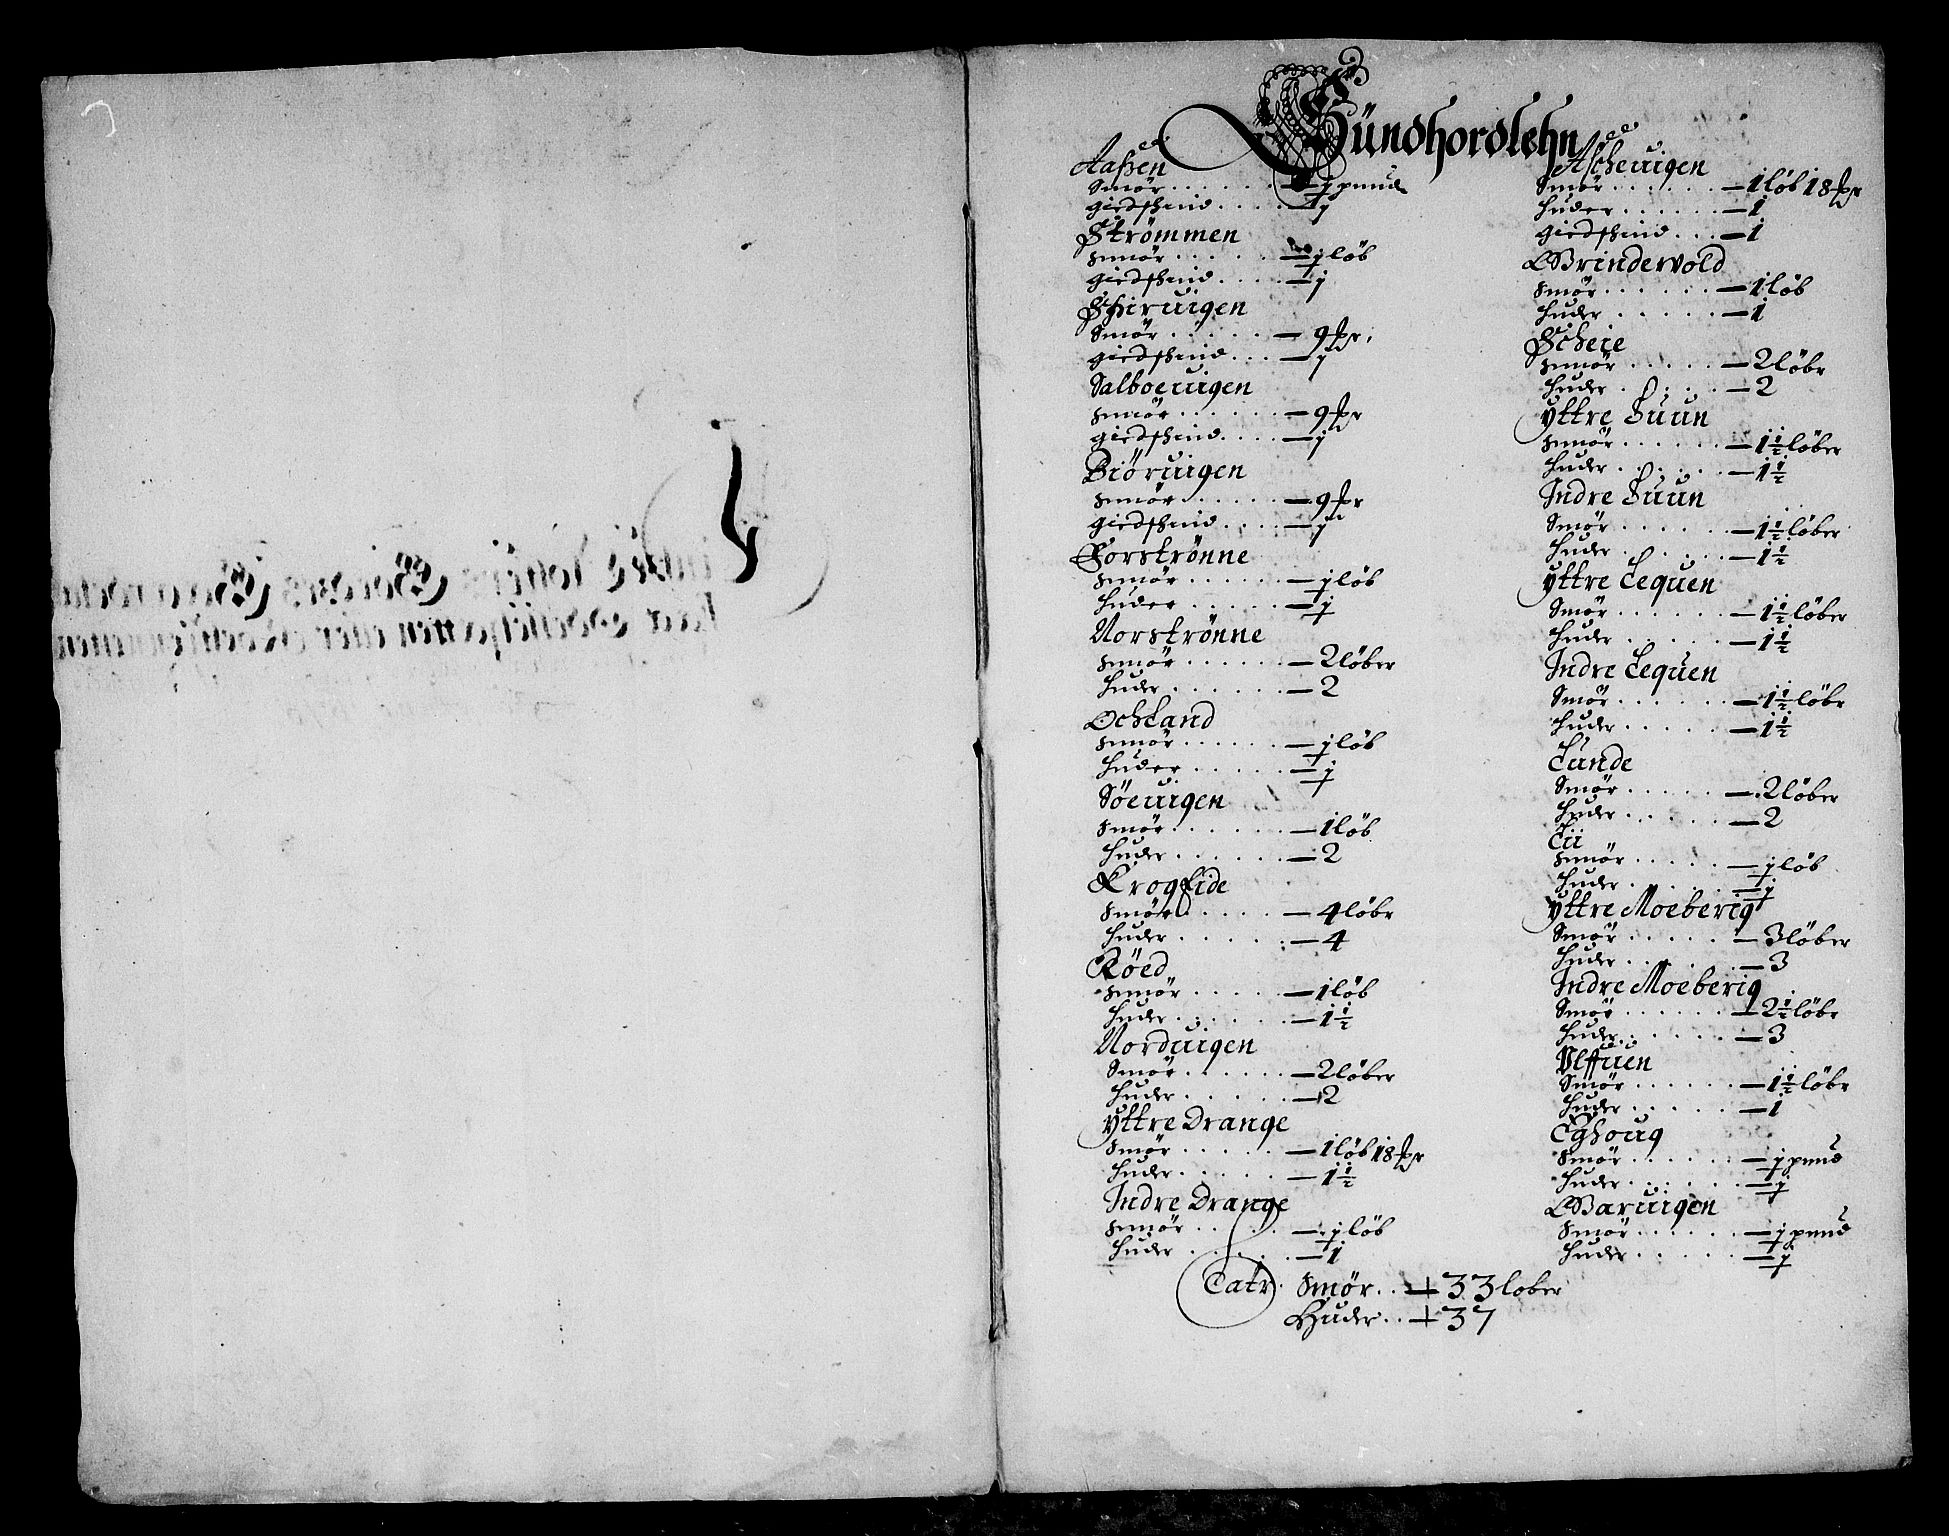 Sündhordlehn
Aaßen
Smør . . . . . . — j pund
giedskind . . . . . — j
Strømmen
smør . . . . . — j løb
giedskind . . . . — j
Skiruigen
Smør . . . . . . — 9 pr
giedskind . . . — j
Salboeuigen
smør . . . . . . — 9 pr
giedskind . . . . — j
Biöruigen
smør . . . . . . — 9 pr
giedskind . . . — j
Forstrønne
smør . . . . . . — j løb
huder . . . . . . — j
Norstrønne
smør . . . . . . — 2 løber
huder . . . . . . — 2
Ochland
smør . . . . . . — j løb
huder . . . . . . — j
Søeuigen
smør . . . . . . — 1 løb
huder . . . . . . — 2
Kroglide
smør . . . . . — 4 løbr
huder . . . . . — 4
Røed
smør . . . . . — 1 løb
huder . . . . . . — 1½
Norduigen
Smør . . . . . . — 2 løber
huder . . . . . . — 2
yttre Drange
Smør . . . . . . — 1 løb 18 pr
huder . . . . . — 1½
Indre Drange
smør . . . . . — j løb
huder . . . . . — 1
Ascheuigen
Smør . . . . . . — 1 løb 18 pr
huder . . . . . . — 1
giedskind . . . — 1
Grindevold
smør . . . . . . — 1 løb
huder . . . . . — 1
Scheie
smør . . . . . — 2 løbr
huder . . . . . — 2
yttre Luun
smør . . . . . . — 1½ løber
huder . . . . . — 1½
Indre Luun
Smør . . . . . . — 1½ løber
huder . . . . . — 1½
yttre Lequen
Smør . . . . . . — 1½ løber
huder . . . . . — 1½
Indre Lequen
Smør . . . . . . — 1½ løbr
huder . . . . . — 1½
Lunde
Smør . . . . . — 2 løber
huder . . . . . — 2
Lii
smør . . . . . — j løb
huder . . . . . — j
yttre Moeberig
Smør . . . . . — 3 løber
huder . . . . . — 3
Indre Moeberig
Smør . . . . . . — 2½ løbr
huder . . . . . — 3
Vlffuen
Smør . . . . . . — 1½ løbr
huder . . . . . — 1
Eghoug
smør . . . . . . — j pund
huder . . . . . . — j
Baruigen
smør . . . . . . — j pund
huder . . . . . — j
Latr. Smør . . — 33 løber
Huder . . — 37